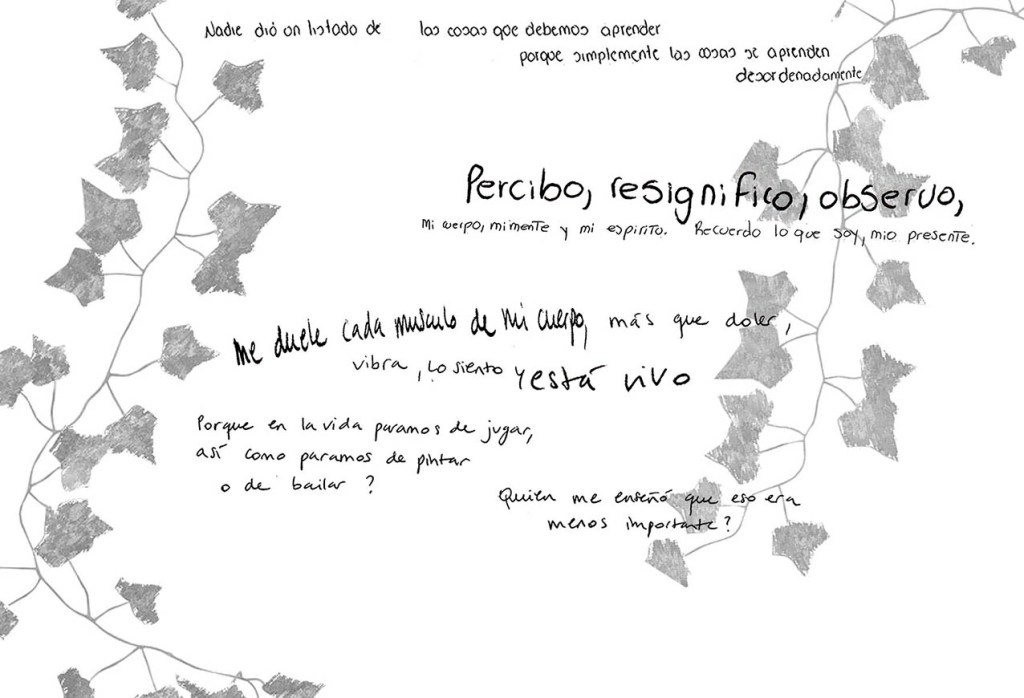 Nadie dió un listado de las cosas que debemos aprender
porque simplemente las cosas se aprenden
desordenadamente
Percibo, resignifico, observo,
Mi cuerpo, mi mente y mi espiritu. Recuerdo lo que soy, mio presente.
Me duele cada musculo de mi cuerpo, más que doler,
vibra, lo siento y está vivo
Porque en la vida paramos de jugar,
así como paramos de pintar
o de bailar?
Quien me enseñó que eso era
menos importante?